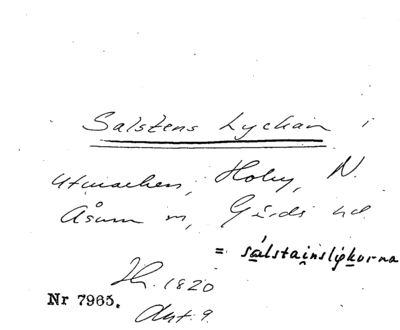 Salstens Lyckan i
utmarken, Holey, N.
Åsum sn, Gärds hd
= sálstainslýkorna
Lh. 1820
Nr 7965.
Akt. 9.